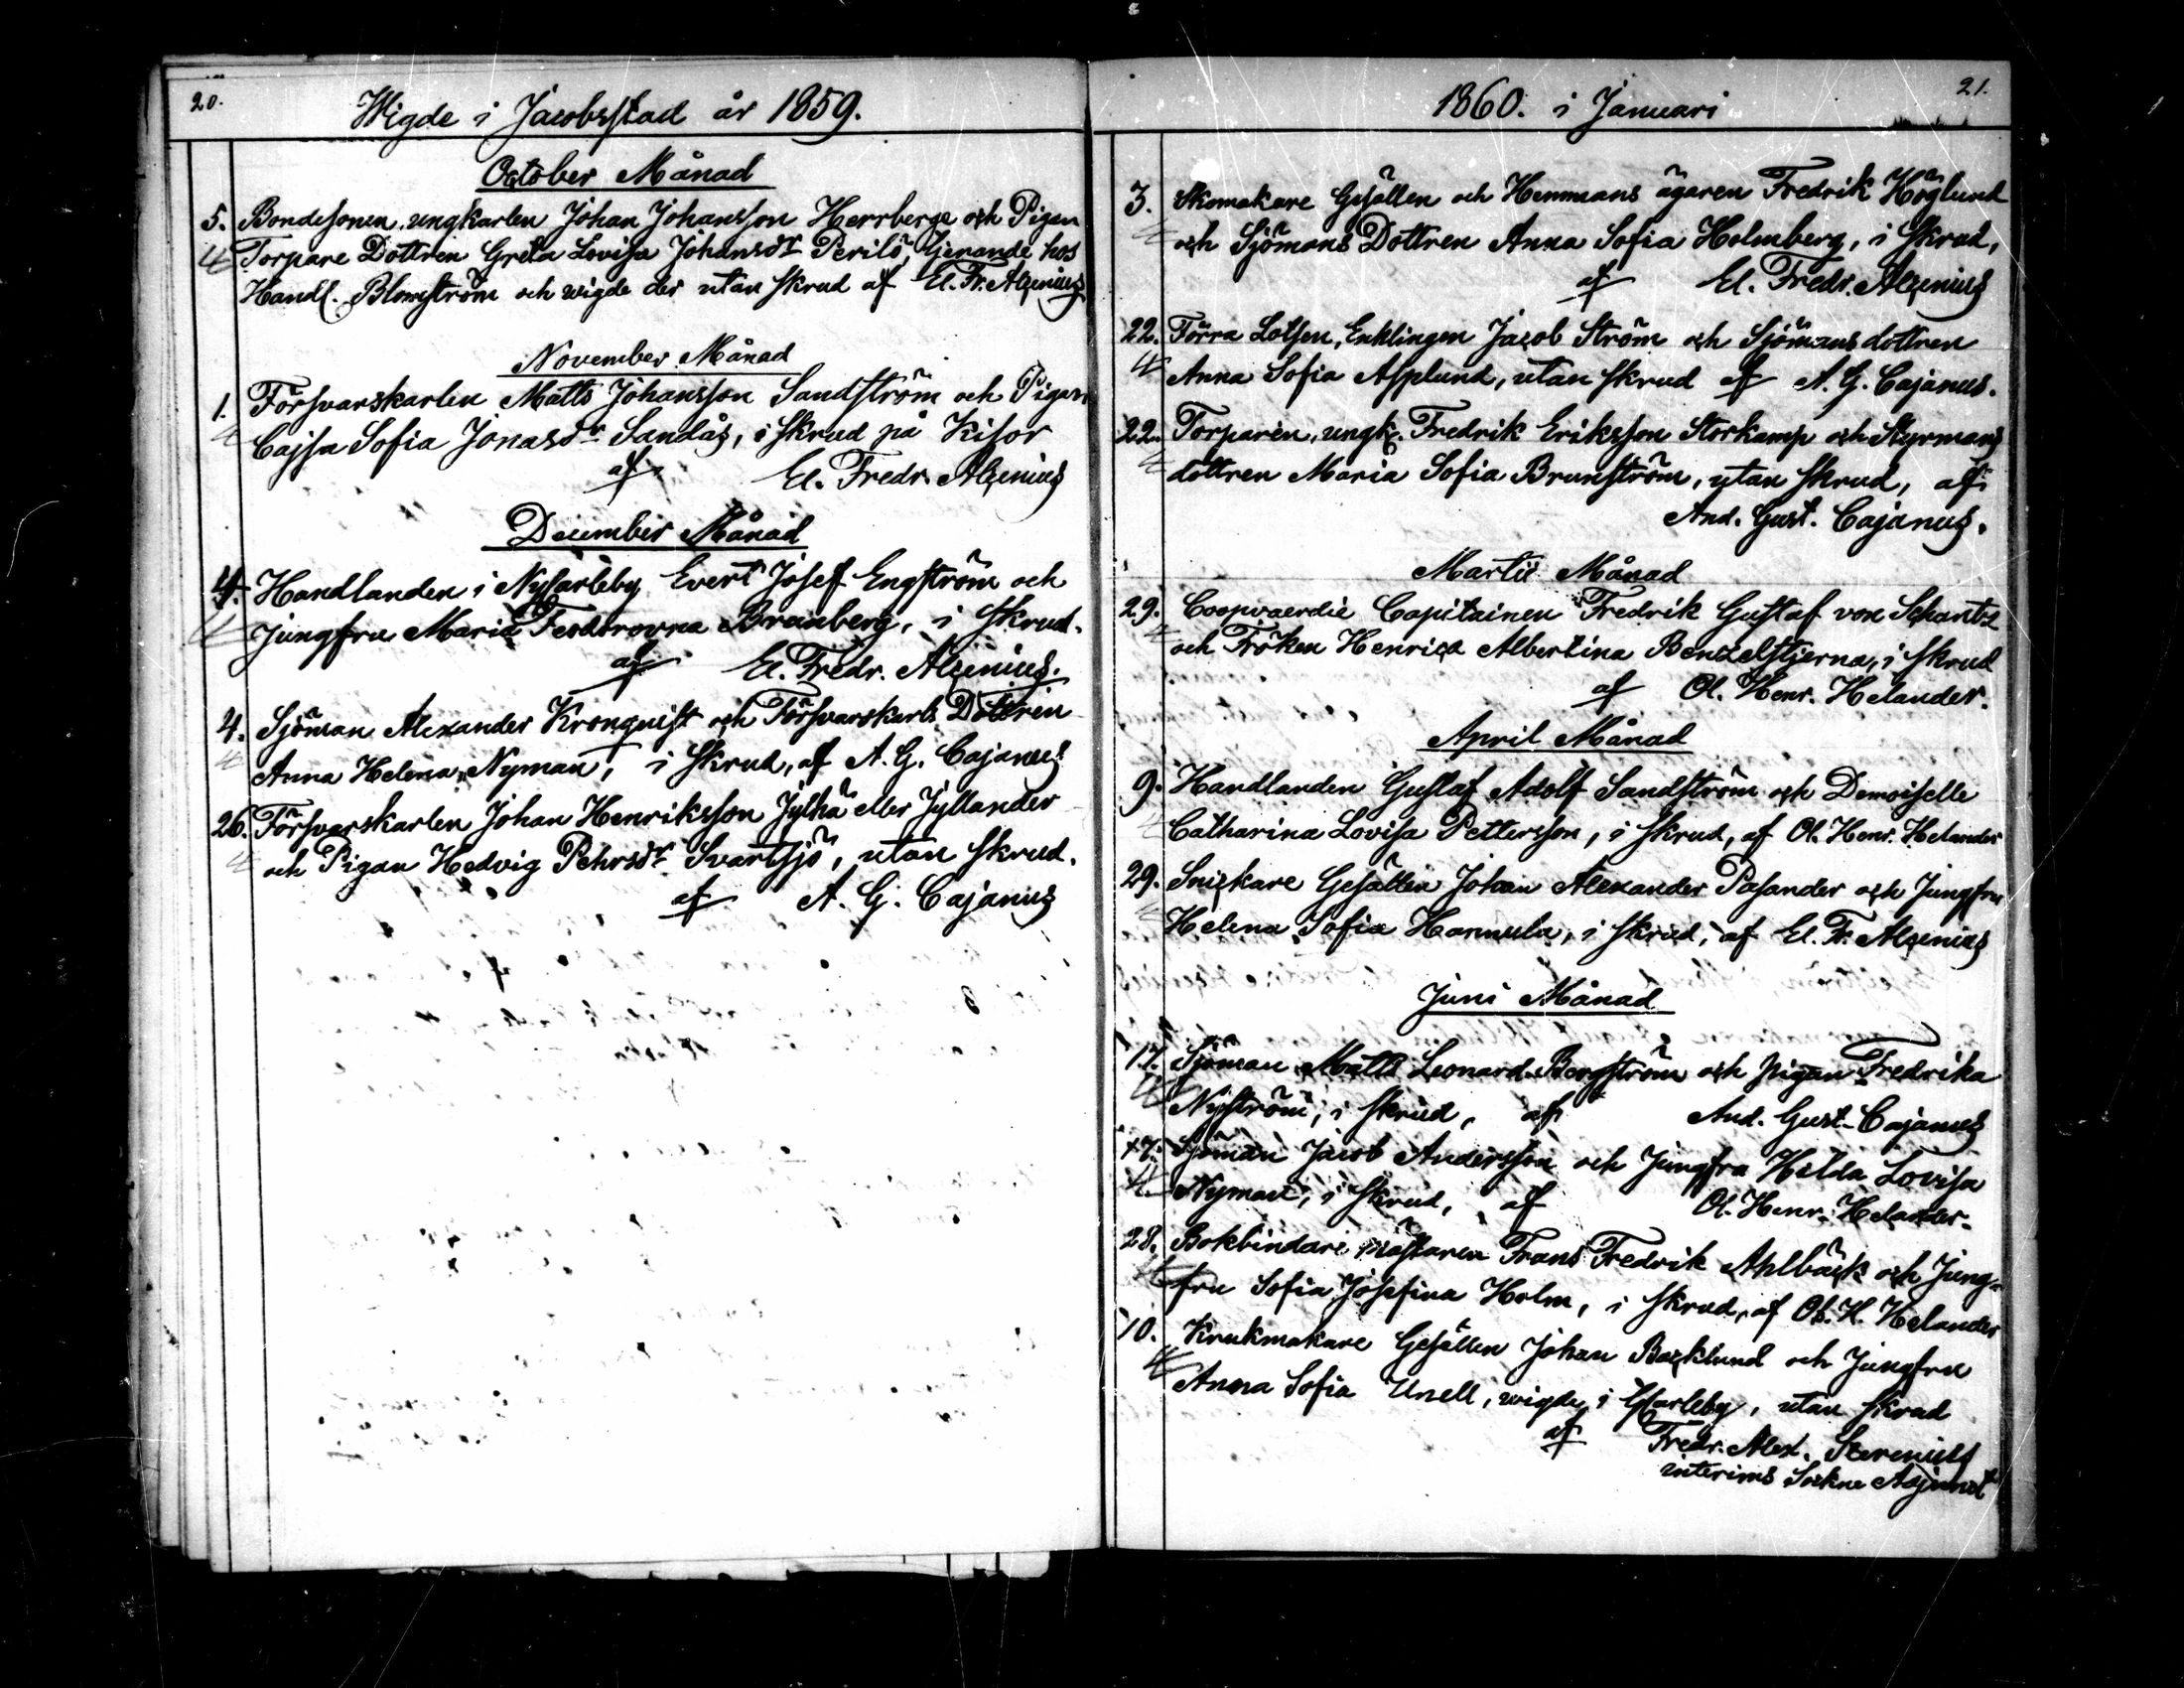 20.
Wigde i Jacobsstad år 1859.
October Månad
5. Bondesonen, ungkarlen Johan Johansson Herrberge och Pigan
Torpare Dottren Greta Lovisa Johansdr Perilö, tjenande hos
Handl. Blomström och wigde der utan skrud af El. Fr. Alcenius
November Månad
1. Försvarskarlen Matts Johansson Sandström och Pigan
Cajsa Sofia Jonasdr Sandås, i skrud på Kisor
af El. Fredr. Alcenius
December Månad
4. Handlanden i Nycarleby Evert Josef Engström och
Jungfru Maria Feodorovna Brunberg, i skrud.
af El. Fredr. Alcenius.
4. Sjöman Alexander Kronquist och Försvarskarls Dottren
Anna Helena Nyman, i skrud, af A. G. Cajanus
26. Försvarskarlen Johan Henriksson Jylhä eller Jyllander
och Pigan Hedvig Pehrsdr Svartsjö, utan skrud.
af A. G. Cajanus
21.
1860. i Januari
3. Skomakare Gesällen och Hemmans ägaren Fredrik Höglund
och Sjömans Dottren Anna Sofia Holmberg, i skrud,
af El. Fredr. Alcenius
22. Förra Lotsen, Enklingen Jacob Ström och Sjömansdottren
Anna Sofia Asplund, utan skrud af A. G. Cajanus.
22. Torparen, ungk. Fredrik Eriksson Storkamp och Styrmans
dottren Maria Sofia Brunström, utan skrud, af
And. Gust. Cajanus.
Martii Månad
29. Coopvaerdie Capitainen Fredrik Gustaf von Schantz
och Fröken Henrica Albertina Benzelstjerna, i skrud
af Ol. Henr. Helander.
April Månad
9. Handlanden Gustaf Adolf Sandström och Demoiselle
Catharina Lovisa Pettersson, i skrud, af Ol. Henr. Helander
29. Snickare Gesällen Johan Alexander Pasander och Jungfru
Helena Sofia Hannula, i skrud, af El. Fr. Alcenius
Juni Månad
17. Sjöman Matts Leonard Bergström och pigan Fredrika
Nyström, i skrud, af And. Gust. Cajanus
17. Sjöman Jacob Andersson och Jungfru Hilda Lovisa
Nyman, i skrud, af Ol. Henr. Helander.
28. Bokbindare mästaren Frans Fredrik Ahlbäck och Jung-
fru Sofia Josefina Holm, i skrud, af Ol. H. Helander
10. Krukmakare Gesällen Johan Backlund och Jungfru
Anna Sofia Unell, wigde i Carleby, utan skrud
af Fredr. Alex.
interims Sockne Adjunct